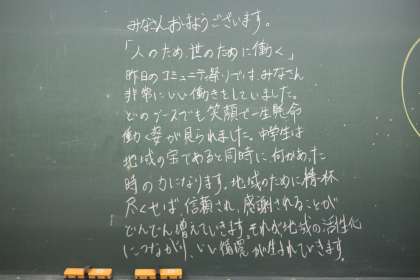 みなさんおはようございます。
「人のため、世のために働く」
昨日のコミュニティ祭りでは、みなさん
非常にいい働きをしていました。
どのブースでも笑顔で一生懸命
働く姿が見られました。中学生は
地域の宝であると同時に、何かあった
時の力になります。地域のために精一杯
尽くせば、信頼され、感謝されることが
どんどん増えていきます。それが地域の活性化
につながり、いい循環が生まれていきます。